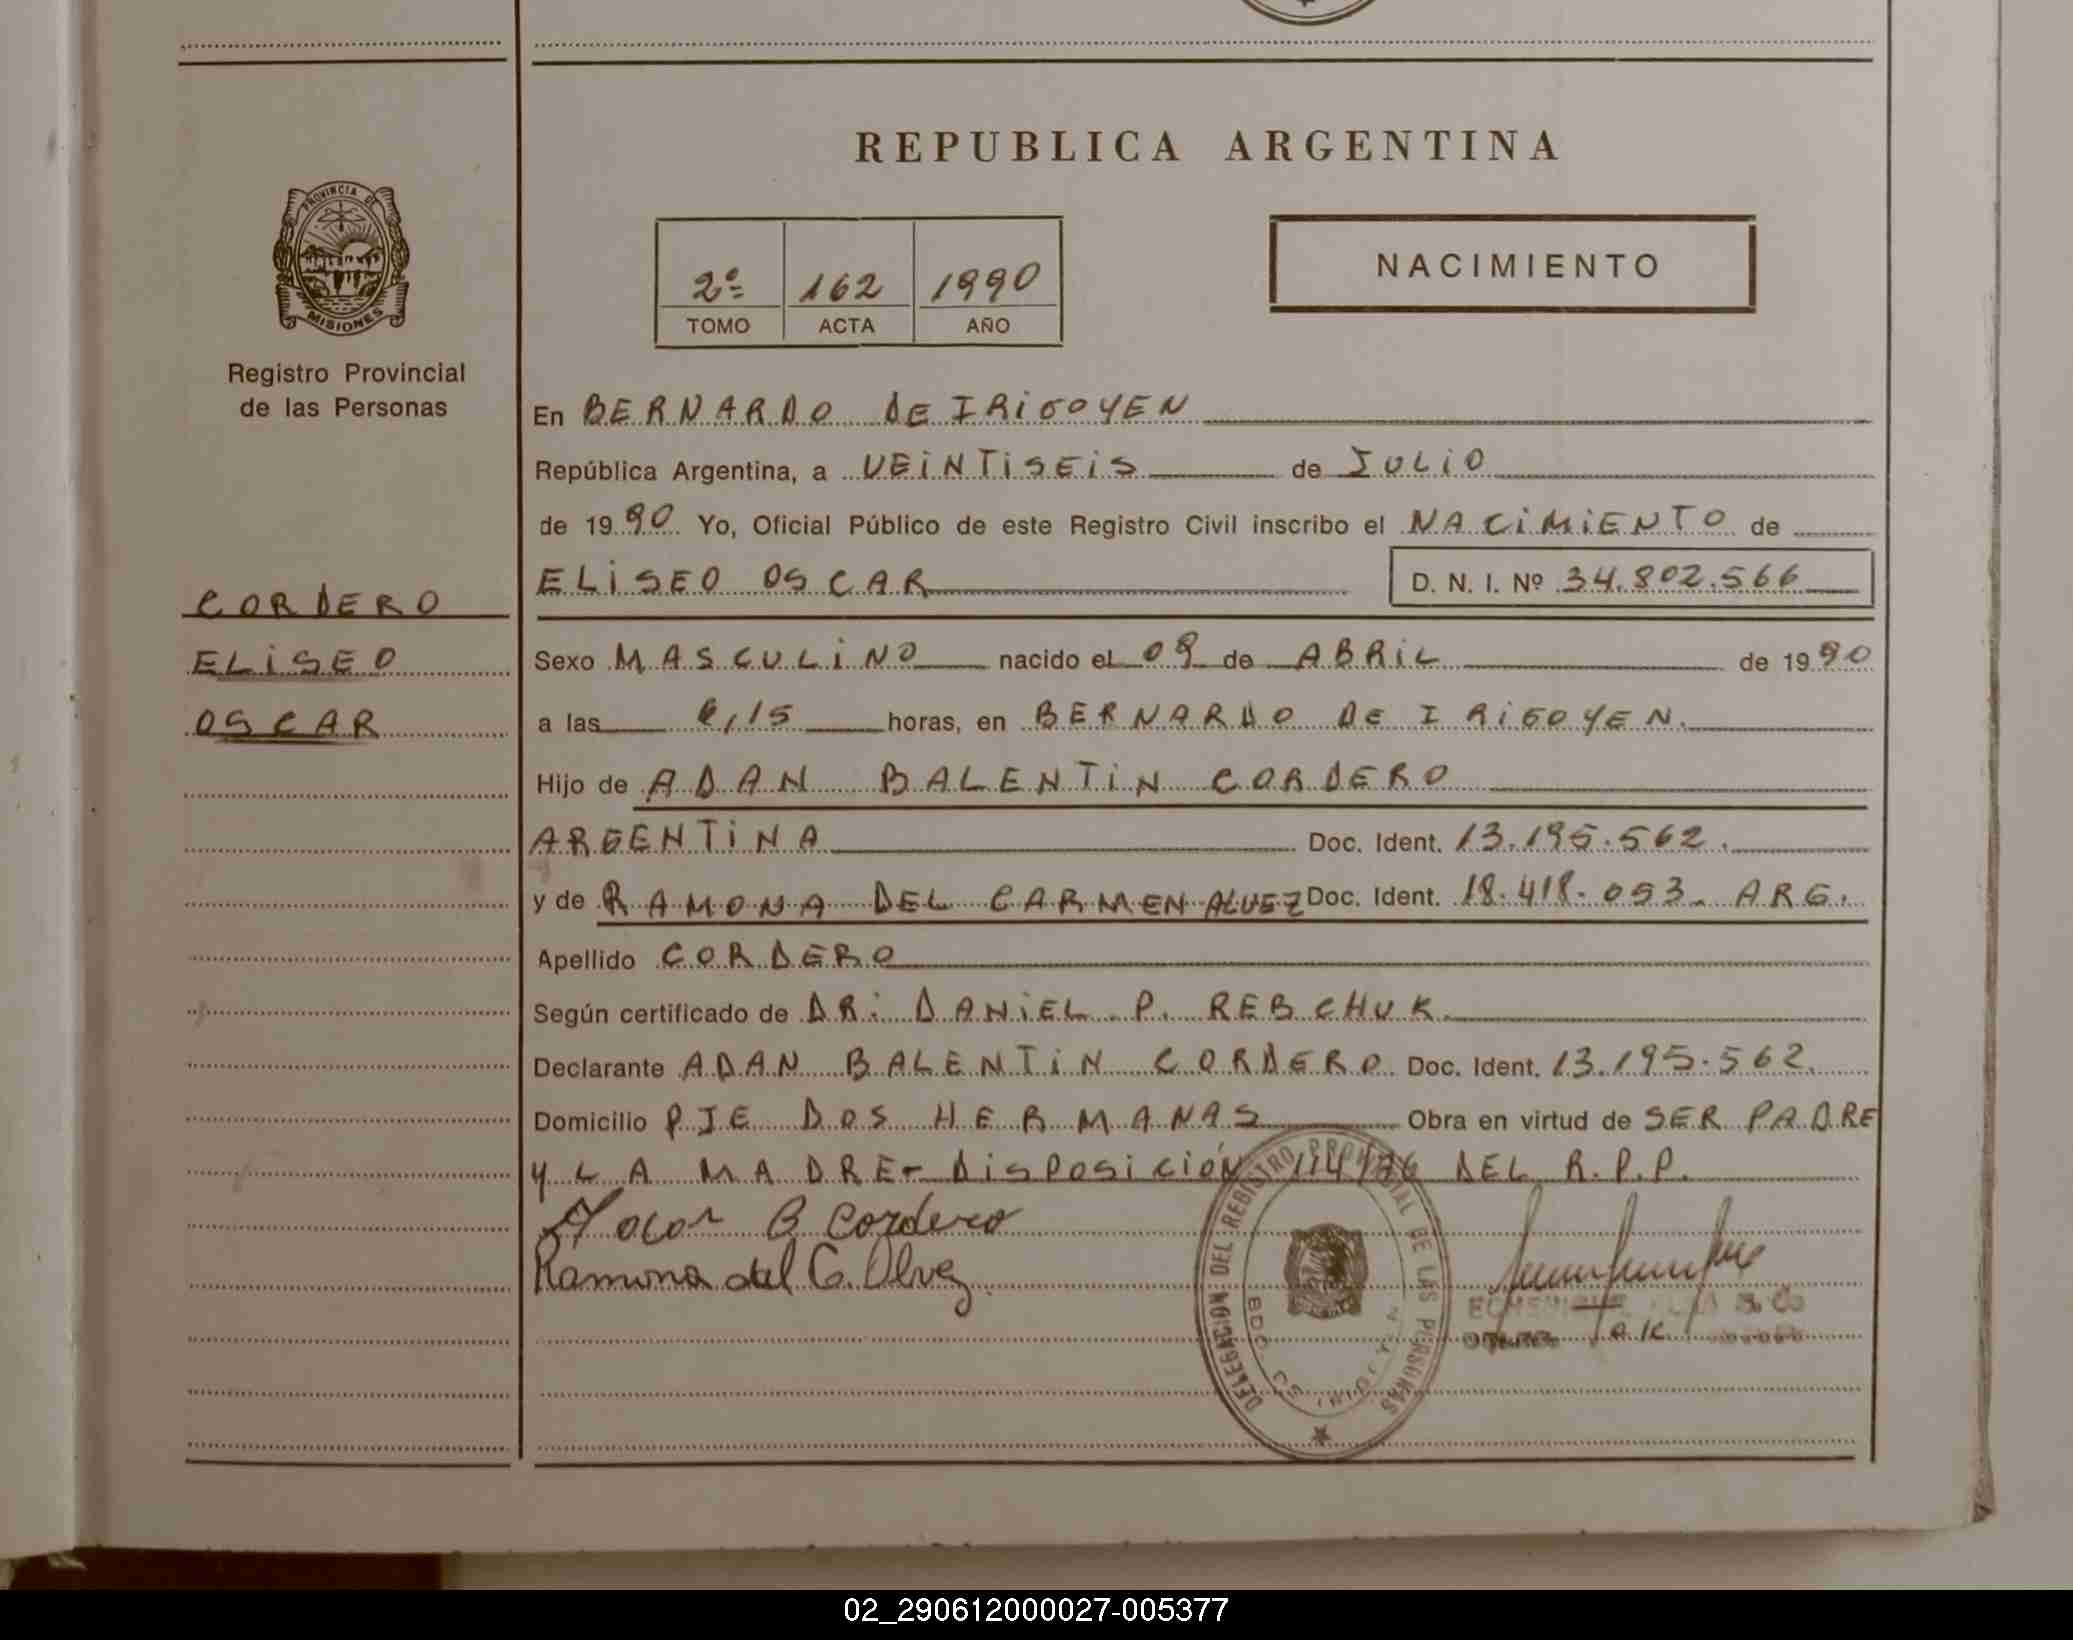 REPUBLICA ARGENTINA
PROVINCIA DE
MISIONES
Registro Provincial
de las Personas
2º
162
1990
TOMO
ACTA
AÑO
NACIMIENTO
En BERNARDO DE IRIGOYEN
República Argentina, a VEINTISEIS de JULIO
de 1990 Yo, Oficial Público de este Registro Civil inscribo el NACIMIENTO de
ELISEO OSCAR D. N. I. Nº 34.802.566
CORDERO
ELISEO
OSCAR
Sexo MASCULINO nacido el 09 de ABRIL de 1990
a las ,15 horas, en BERNARDO DE IRIGOYEN.
Hijo de ADAN BALENTIN CORDERO
ARGENTINA Doc. Ident. 13.195.562.
y de RAMONA DEL CARMEN ALVEZ Doc. Ident. 18.418.093. ARG.
Apellido CORDERO
Según certificado de DR: DANIEL P. REBCHUK.
Declarante ADAN BALENTIN CORDERO Doc. Ident. 13.195.562.
Domicilio PJE DOS HERMANAS Obra en virtud de SER PADRE
Y LA MADRE- DISPOSICIÓN 114/86 DEL R.P.P.
B Cordero
Ramona del C. Olvez
DELEGACION DEL REGISTRO PROVINCIAL DE LAS PERSONAS
BDO. DE IRIGOYEN
02_290612000027-005377